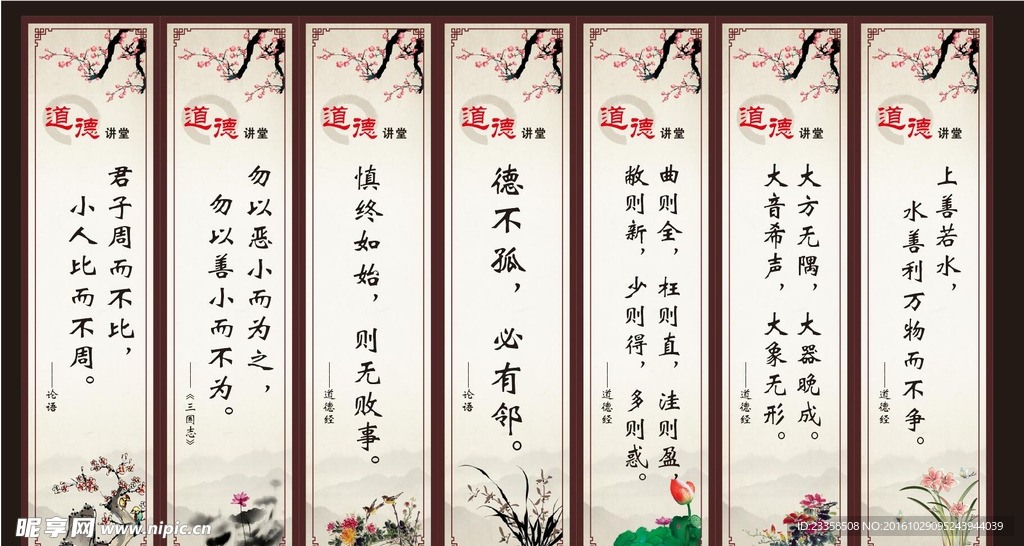 道德讲堂
君子周而不比，
小人比而不周。
——论语
道德讲堂
勿以恶小而为之，
勿以善小而不为。
——《三国志》
道德讲堂
慎终如始，则无败事。
——道德经
道德讲堂
德不孤，必有邻。
——论语
道德讲堂
曲则全，枉则直，洼则盈，
敝则新，少则得，多则惑。
——道德经
道德讲堂
大方无隅，大器晚成。
大音希声，大象无形。
——道德经
道德讲堂
上善若水，
水善利万物而不争。
——道德经
昵享网 www.nipic.cn
ID:23358508 NO:20161029095243944039